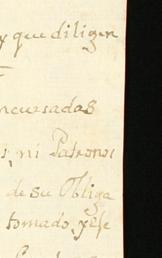 y que diligen
ncursadas
s, ni Patronos
de su Obliga
tomado, y se